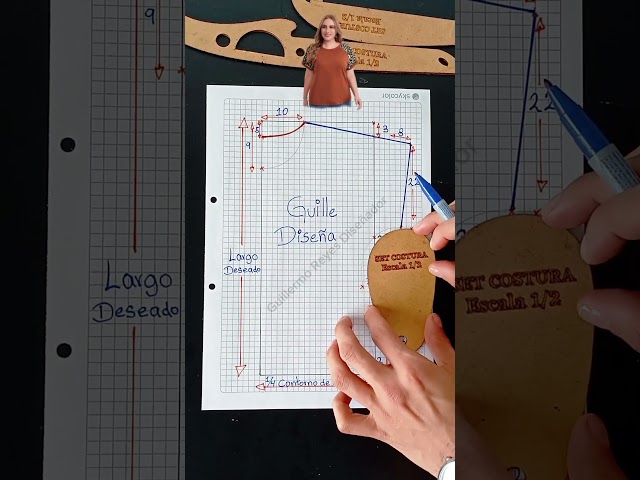 SET COSTURA
Escala 1/2
COSTURA
1/2
skycolor
9
10
5
9
3
8
22
22
Guille
Diseña
Guillermo Reyes Diseñador
Largo
Deseado
Largo
Deseado
SET COSTURA
Escala 1/2
SET COSTURA
Escala 1/2
1/4 Contorno de